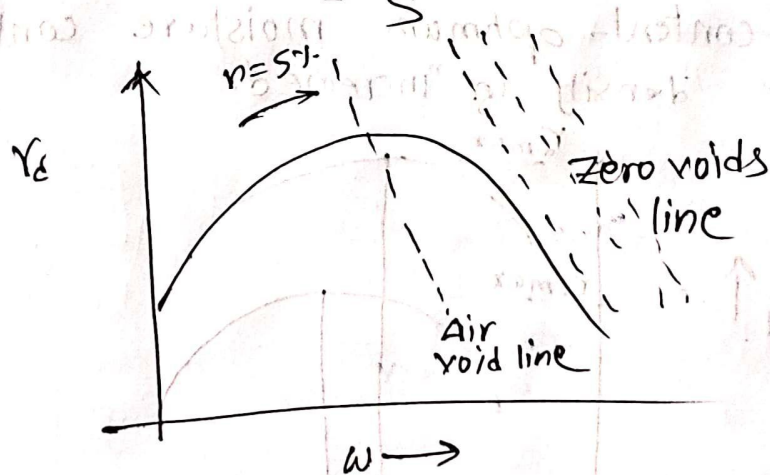 S
n=5%
γd
zero voids
line
Air
void line
w →